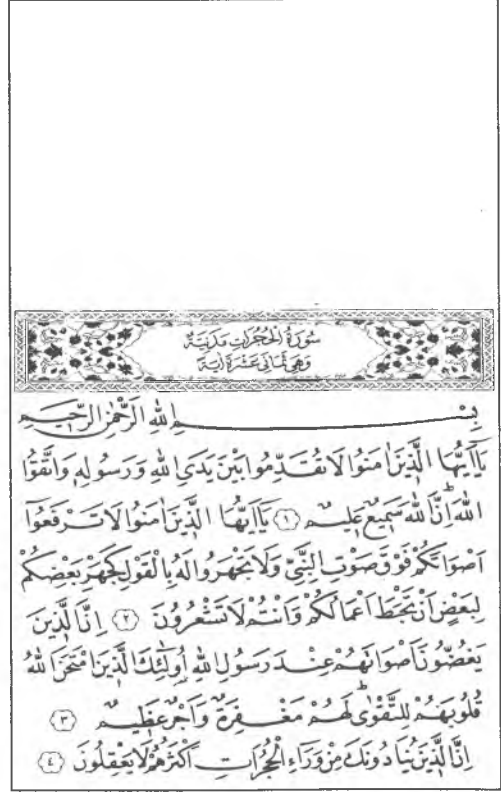 سُورَةُ الْحُجُرَاتِ مَدَنِيَّةٌ
وَهِيَ ثَمَانِيَ عَشْرَةَ اٰيَةً
بِسْمِ اللّٰهِ الرَّحْمٰنِ الرَّحِيمِ
يَٓا اَيُّهَا الَّذٖينَ اٰمَنُوا لَا تُقَدِّمُوا بَيْنَ يَدَىِ اللّٰهِ وَرَسُولِهٖ وَاتَّقُوا
اللّٰهَ اِنَّ اللّٰهَ سَمٖيعٌ عَلٖيمٌ ﴿١﴾ يَٓا اَيُّهَا الَّذٖينَ اٰمَنُوا لَا تَرْفَعُٓوا
اَصْوَاتَكُمْ فَوْقَ صَوْتِ النَّبِيِّ وَلَا تَجْهَرُوا لَهُ بِالْقَوْلِ كَجَهْرِ بَعْضِكُمْ
لِبَعْضٍ اَنْ تَحْبَطَ اَعْمَالُكُمْ وَاَنْتُمْ لَا تَشْعُرُونَ ﴿٢﴾ اِنَّ الَّذٖينَ
يَغُضُّونَ اَصْوَاتَهُمْ عِنْدَ رَسُولِ اللّٰهِ اُو۬لٰٓئِكَ الَّذٖينَ امْتَحَنَ اللّٰهُ
قُلُوبَهُمْ لِلتَّقْوٰى لَهُمْ مَغْفِرَةٌ وَاَجْرٌ عَظٖيمٌ ﴿٣﴾
اِنَّ الَّذٖينَ يُنَادُونَكَ مِنْ وَرَٓاءِ الْحُجُرَاتِ اَكْثَرُهُمْ لَا يَعْقِلُونَ ﴿٤﴾